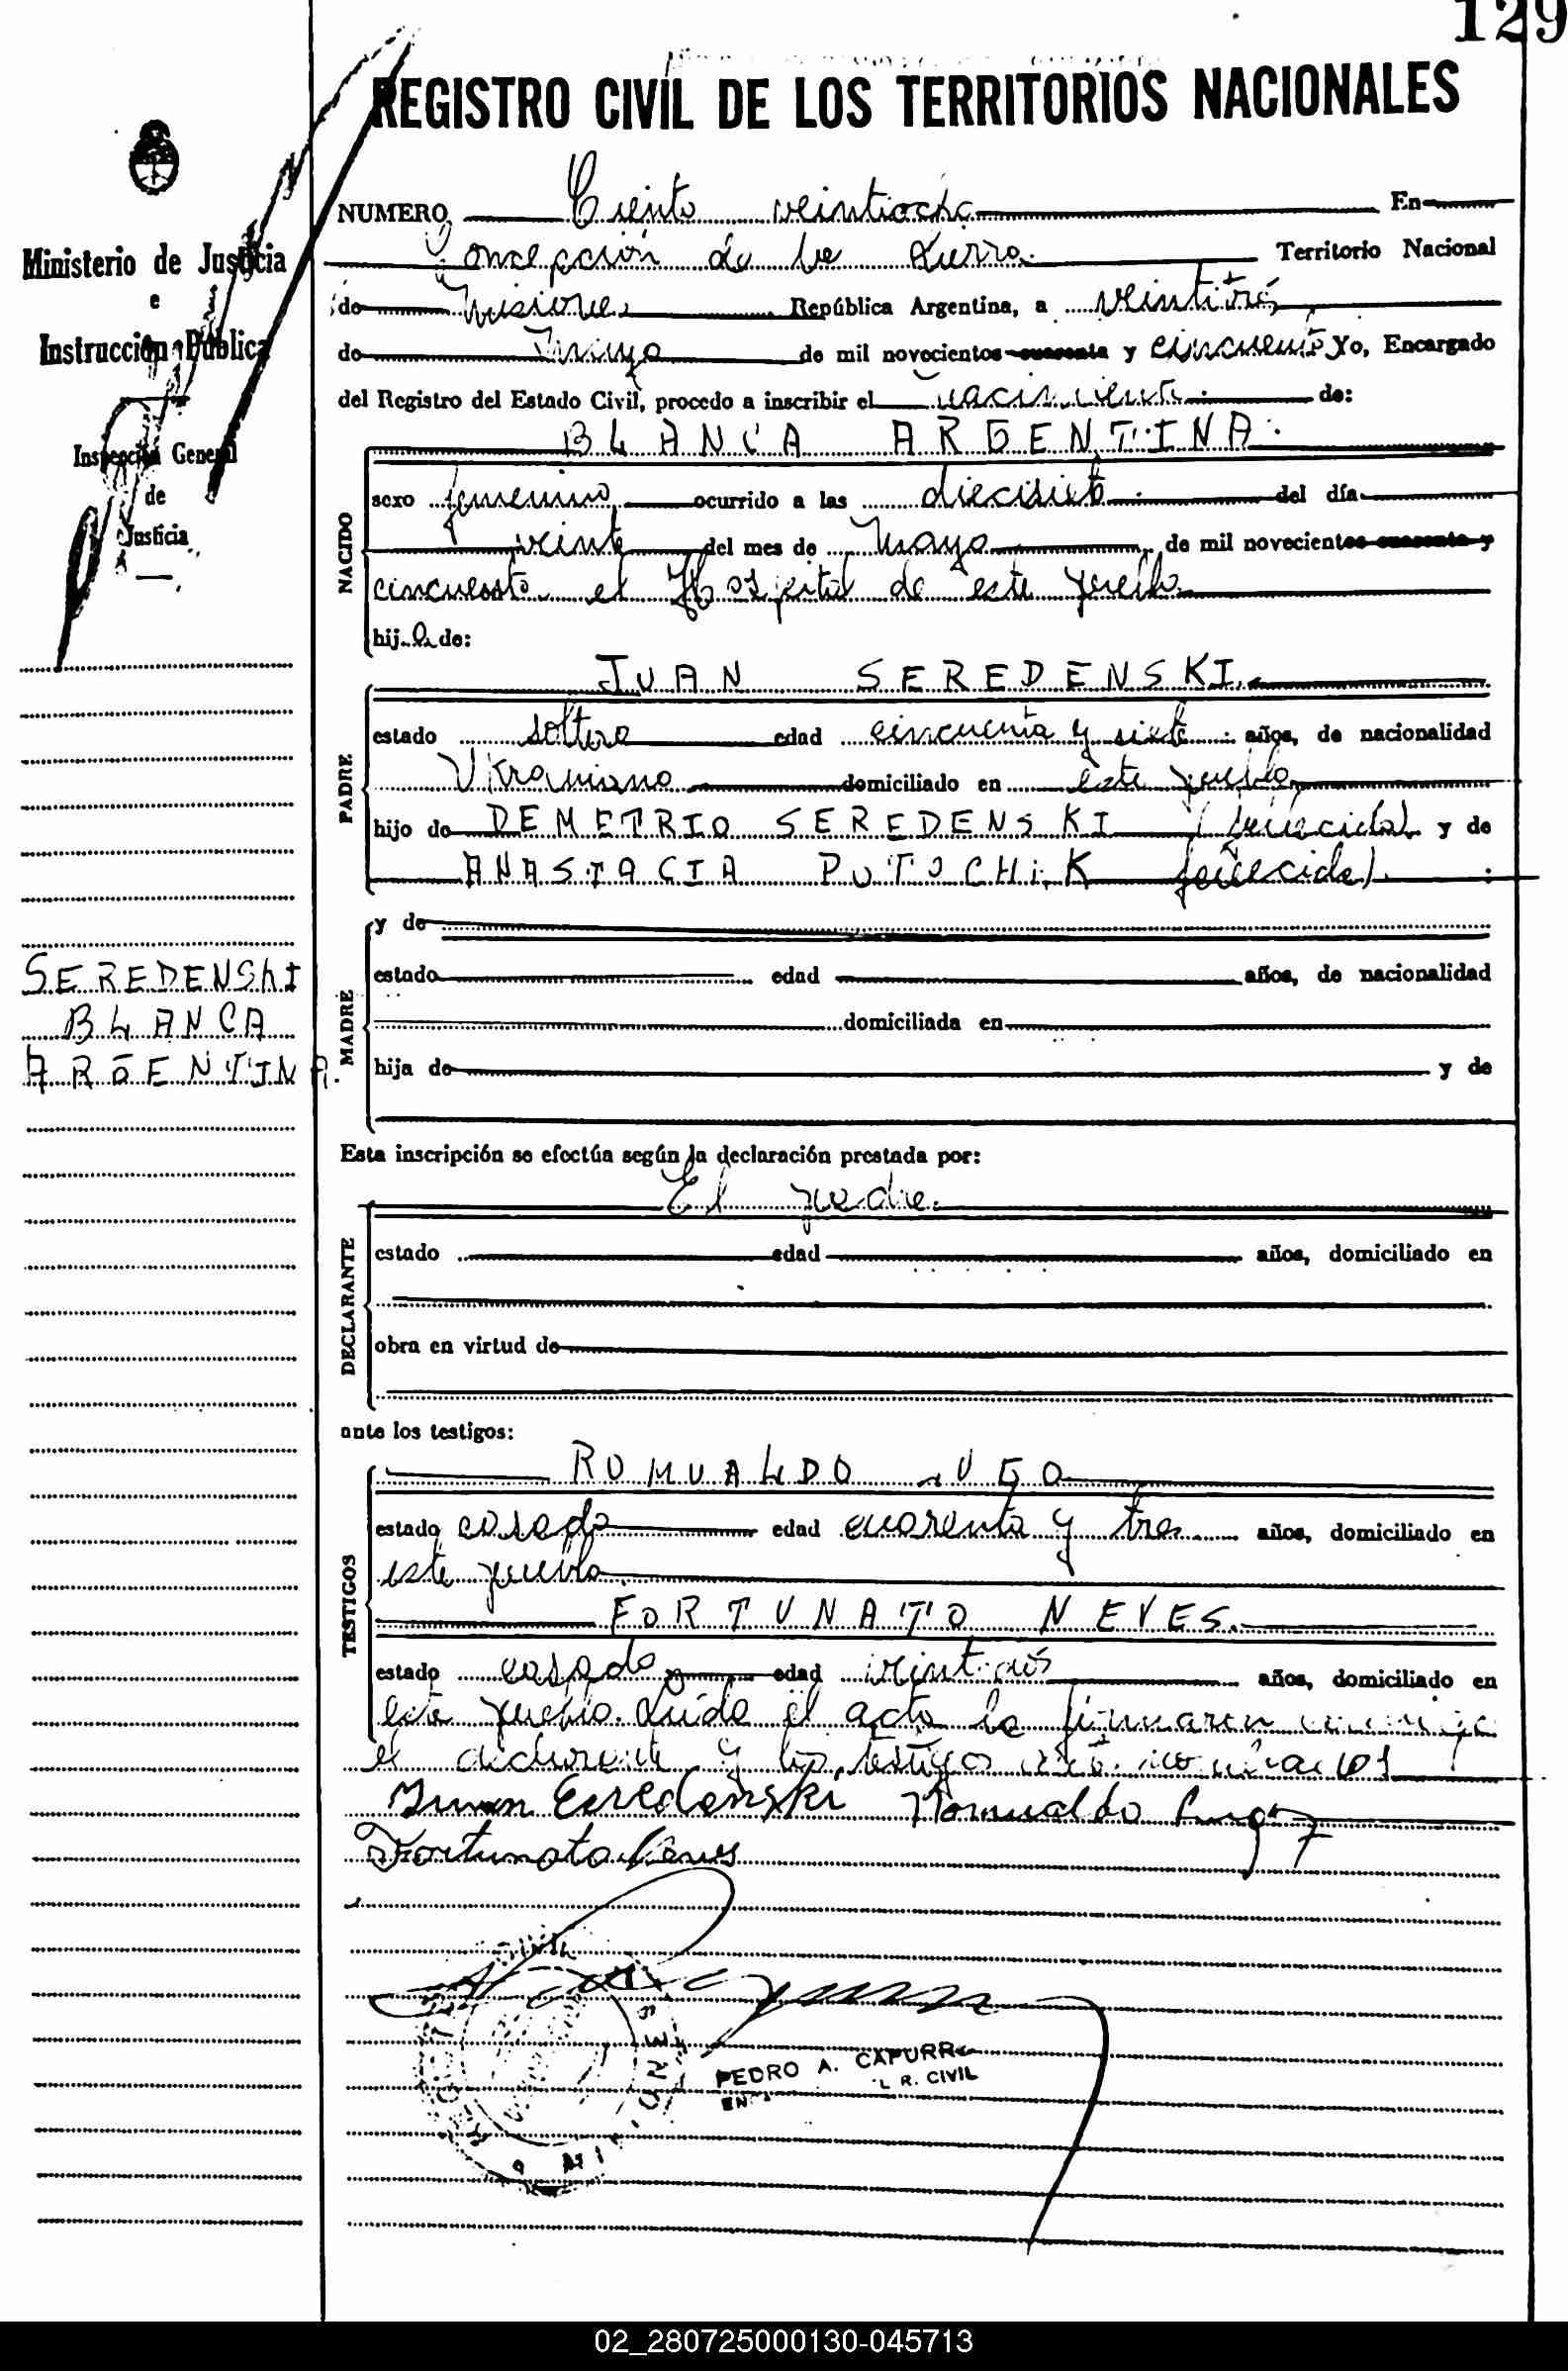 129
REGISTRO CIVIL DE LOS TERRITORIOS NACIONALES
Ministerio de Justicia
e
Instrucción Pública
Inspección General
de
Justicia
SEREDENSKI
BLANCA
ARGENTINA.
NUMERO Ciento veintiocho En
Concepción de la Sierra Territorio Nacional
de Misiones República Argentina, a veintitrés
de Mayo de mil novecientos cuarenta y cincuenta Yo, Encargado
del Registro del Estado Civil, procedo a inscribir el nacimiento de:
BLANCA ARGENTINA.
NACIDO
sexo femenino ocurrido a las diecisiete del día
veinte del mes de Mayo de mil novecientos cuarenta y
cincuenta el Hospital de este pueblo
hija de:
JUAN SEREDENSKI.
PADRE
estado soltero edad cincuenta y siete años, de nacionalidad
Ukraniano domiciliado en este pueblo
hijo de DEMETRIO SEREDENSKI (fallecido) y de
ANASTACIA PUTOCHIK fallecida)
MADRE
y de
estado edad años, de nacionalidad
domiciliada en
hija de y de
Esta inscripción se efectúa según la declaración prestada por:
El padre.
DECLARANTE
estado edad años, domiciliado en
obra en virtud de
ante los testigos:
ROMUALDO LUGO
TESTIGOS
estado casado edad cuarenta y tres años, domiciliado en
este pueblo
FORTUNATO NEVES.
estado casado edad veintidós años, domiciliado en
este pueblo. Leída el acta la firmaron conmigo
el declarante y los testigos
Romualdo Lugo
Fortunato Neves
PEDRO A. CAPURRO
R. CIVIL
02_280725000130-045713